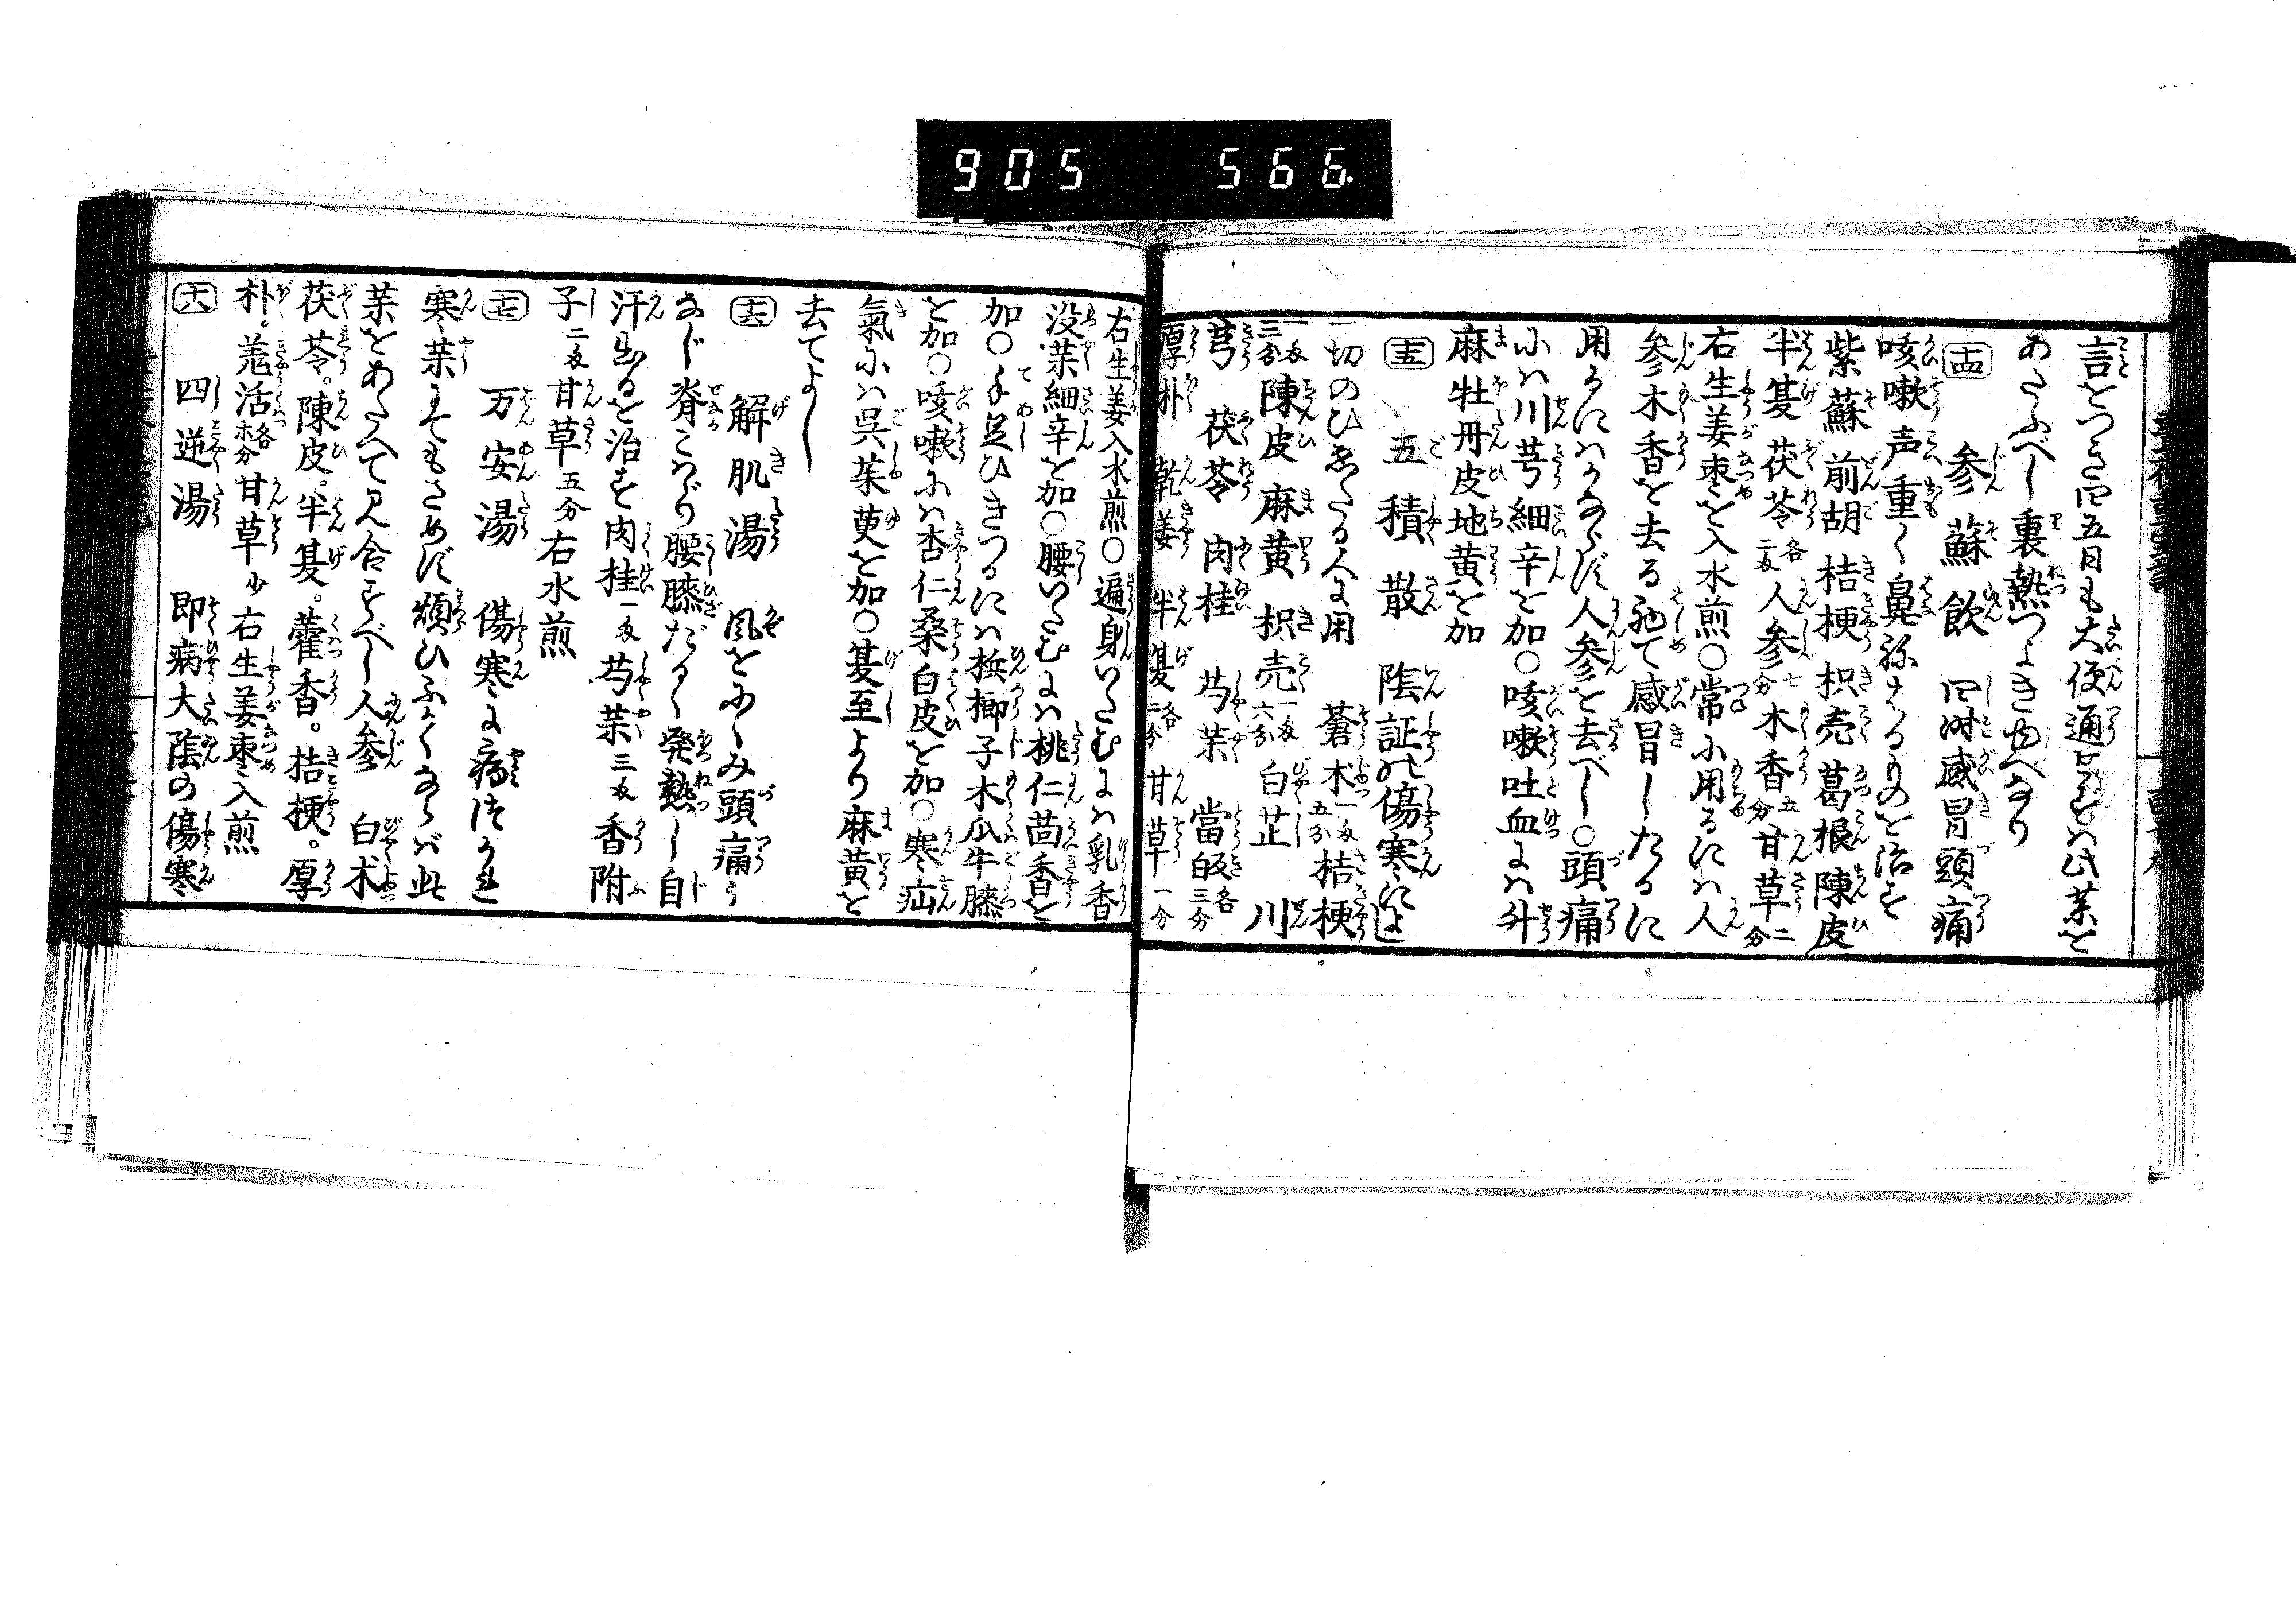 905 566.
言をつき四五日も大便通ぜずは此薬を
あたふべし裏熱つよきゆへなり
十四 参蘇飲 四時感冒頭痛
咳嗽声重く鼻ひるものを治す
紫蘇 前胡 桔梗 枳売 葛根 陳皮
半夏 茯苓各二匁 人参七分 木香五分 甘草二分
右生姜棗を入水煎○常に用るには人
参木香を去る初て感冒したるに
用るにはかならず人参を去べし○頭痛
には川芎細辛を加○咳嗽吐血には升
麻牡丹皮地黄を加
十五 五積散 陰証の傷寒によし
一切のひえたる人に用 蒼朮一匁五分 桔梗
一匁三分 陳皮 麻黄 枳売一匁六分 白芷 川
芎 茯苓 肉桂 芍薬 當皈各三分
厚朴 乾姜 半夏各二分 甘草一分
右生姜入水煎○遍身いたむには乳香
没薬細辛を加○腰いたむには桃仁茴香を
加○手足ひきつるには梹榔子木瓜牛膝
を加○咳嗽には杏仁桑白皮を加○寒疝
氣には呉茱萸を加○夏至より麻黄を
去てよし
十六 解肌湯 風をふくみ頭痛
し脊こはり腰膝だるく発熱し自
汗出るを治す肉桂一匁 芍薬三匁 香附
子二匁 甘草五分 右水煎
十七 万安湯 傷寒に病つかれ
寒薬にてもさめず煩ひふかくならば此
薬をあたへて見合すべし人参 白朮
茯苓。陳皮。半夏。藿香。桔梗。厚
朴。羗活各五分 甘草少 右生姜棗入煎
十八 四逆湯 即病大陰の傷寒